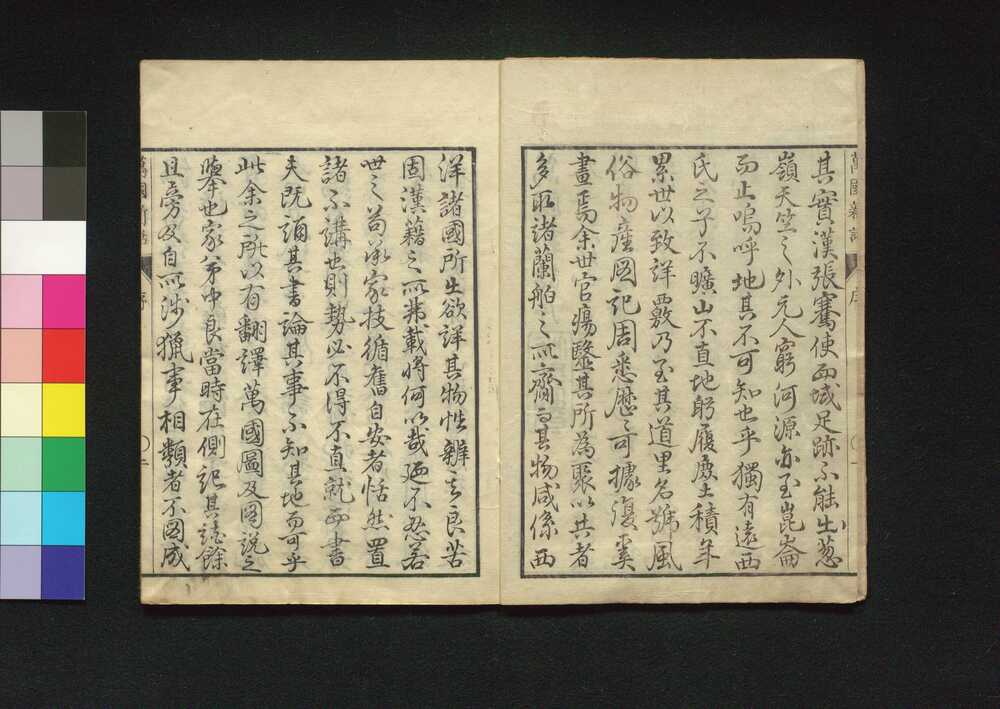 其實漢張騫使西域足跡不能出葱
嶺天竺之外元人窮河源亦至崑崙
而止嗚呼地其不可知也乎獨有遠西
氏之子不曠山不直地躬履處土積年
累世以致詳覈乃至其道里名號風
俗物產図記周悉歷々可據復奚
晝焉余世官瘍毉其所為聚以共者
多取諸蘭舶之所齎而其物咸係西
萬國新話
序
洋諸國所出欲詳其物性辨之良苦
固漢籍之所弗載将何以哉廼不忍若
世之苟承家技循舊自安者恬然置
諸不講也則勢必不得不直就西書
夫既誦其書論其事不知其地而可乎
此余之所以有翻譯萬國圖及図說之
舉也家弟中良當時在側記其譚餘
且旁及自所涉獵事相類者不図成
萬國新話
序
〇二